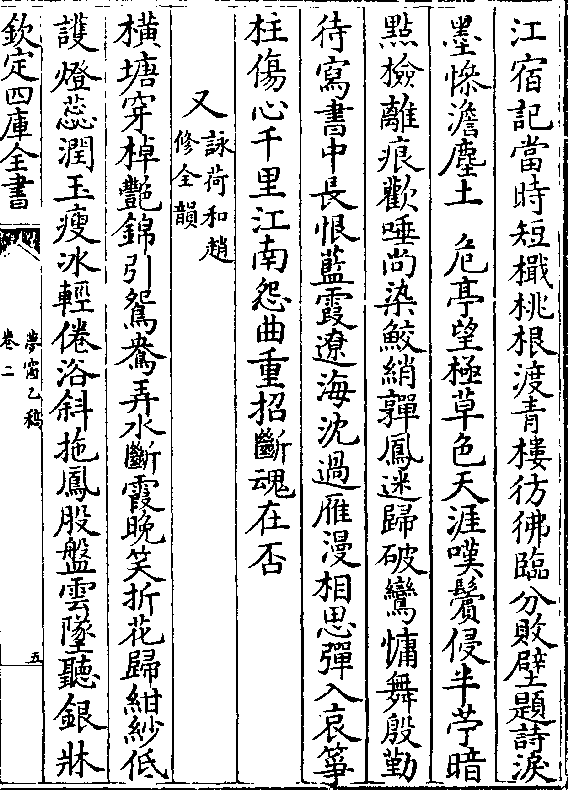 江宿記當時短檝桃根渡青樓彷彿臨分敗壁題詩淚
墨慘澹塵土　危亭望極草色天涯嘆鬢侵半苧暗
㸃檢離痕歡唾尚染鮫綃亸鳳迷歸破鸞慵舞殷勤
待寫書中長恨藍霞遼海沈過雁漫相思彈入哀箏
柱傷心千里江南怨曲重招斷魂在否
又
詠荷和趙
修全韻
橫塘穿棹艷錦引鴛鴦弄水斷霞晚笑折花歸紺紗低
護燈蕊潤玉瘦冰輕倦浴斜拖鳳股盤雲墜聽銀牀
欽定四庫全書
夢窗乙稿
卷二
五